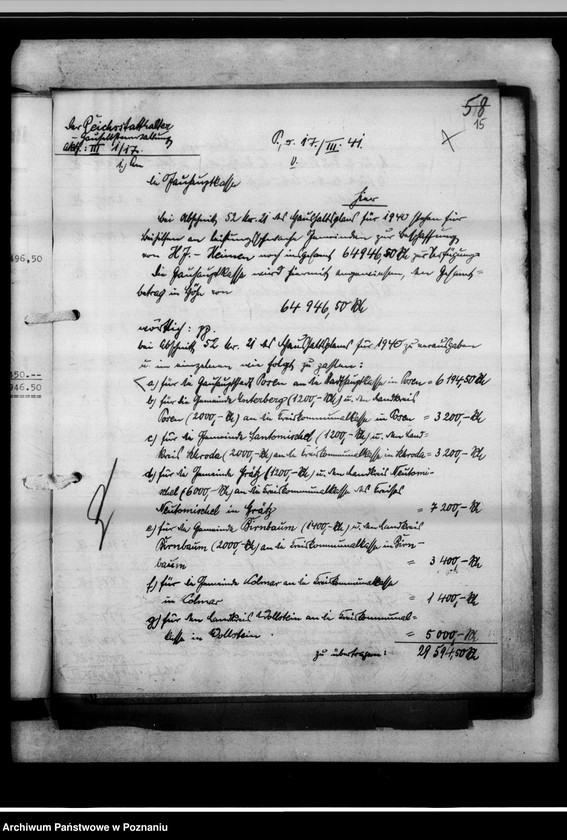 58
15
Der Reichsstatthalter
- Gauselbstverwaltung
Akt.: III 1/17.
P., d. 17./III. 41.
V.
1) An
die Gauhauptkasse
Hier
bei Abschnitt 52 Nr. 21 des Haushaltsplans für 1940 stehen für
Beihilfen an leistungsschwache Gemeinden zur Beschaffung
von H.J.-Heimen noch insgesamt 64946,50 RM zur Verfügung.
Die Gauhauptkasse wird hiermit angewiesen, den Gesamt=
betrag in Höhe von
64 946,50 RM
wörtlich: pp.
bei Abschnitt 52 Nr. 21 des Haushaltsplans für 1940 zu verausgaben
u. im einzelnen wie folgt zu zahlen:
a) für die Gauhauptstadt Posen an die Stadthauptkasse in Posen = 6 194,50 RM
b) für die Gemeinde Unterberg (1200,-RM) u. den Landkreis
Posen (2000,-RM) an die Kreiskommunalkasse in Posen = 3 200,- RM
c) für die Gemeinde Santomischel (1200,-RM) u. den Land=
kreis Schroda (2000,-RM) an die Kreiskommunalkasse in Schroda = 3 200,- RM
d) für die Gemeinde Grätz (1200,-RM) u. den Landkreis Neutomi=
schel (6000,-RM) an die Kreiskommunalkasse des Kreises
Neutomischel in Grätz = 7 200,- RM
e) für die Gemeinde Birnbaum (1400,-RM) u. den Landkreis
Birnbaum (2000,-RM) an die Kreiskommunalkasse in Birn=
baum = 3 400,- RM
f) für die Gemeinde Kolmar an die Kreiskommunalkasse
in Kolmar = 1 400,- RM
g) für den Landkreis Wollstein an die Kreiskommunal=
kasse in Wollstein. = 5 000,- RM
zu übertragen: 29 594,50 RM
496,50
450.—
946.—
Archiwum Państwowe w Poznaniu